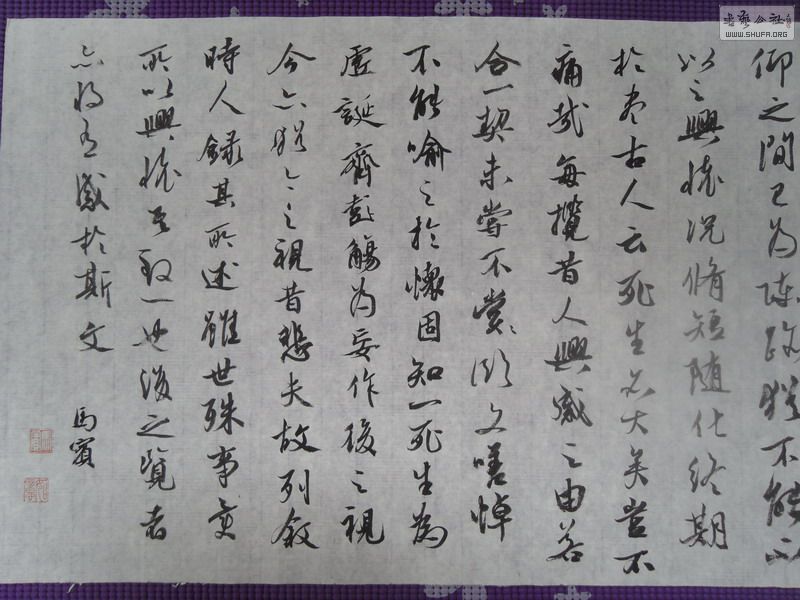 書藝公社
WWW.SHUFA.ORG
仰之間已為陳跡猶不能不
以之興懷況脩短隨化終期
於盡古人云死生亦大矣豈不
痛哉每攬昔人興感之由若
合一契未嘗不嘗臨文嗟悼
不能喻之於懷固知一死生為
虛誕齊彭觴為妄作後之視
今亦猶今之視昔悲夫故列敘
時人錄其所述雖世殊事異
所以興懷其致一也後之覽者
亦將有感於斯文
馬賓